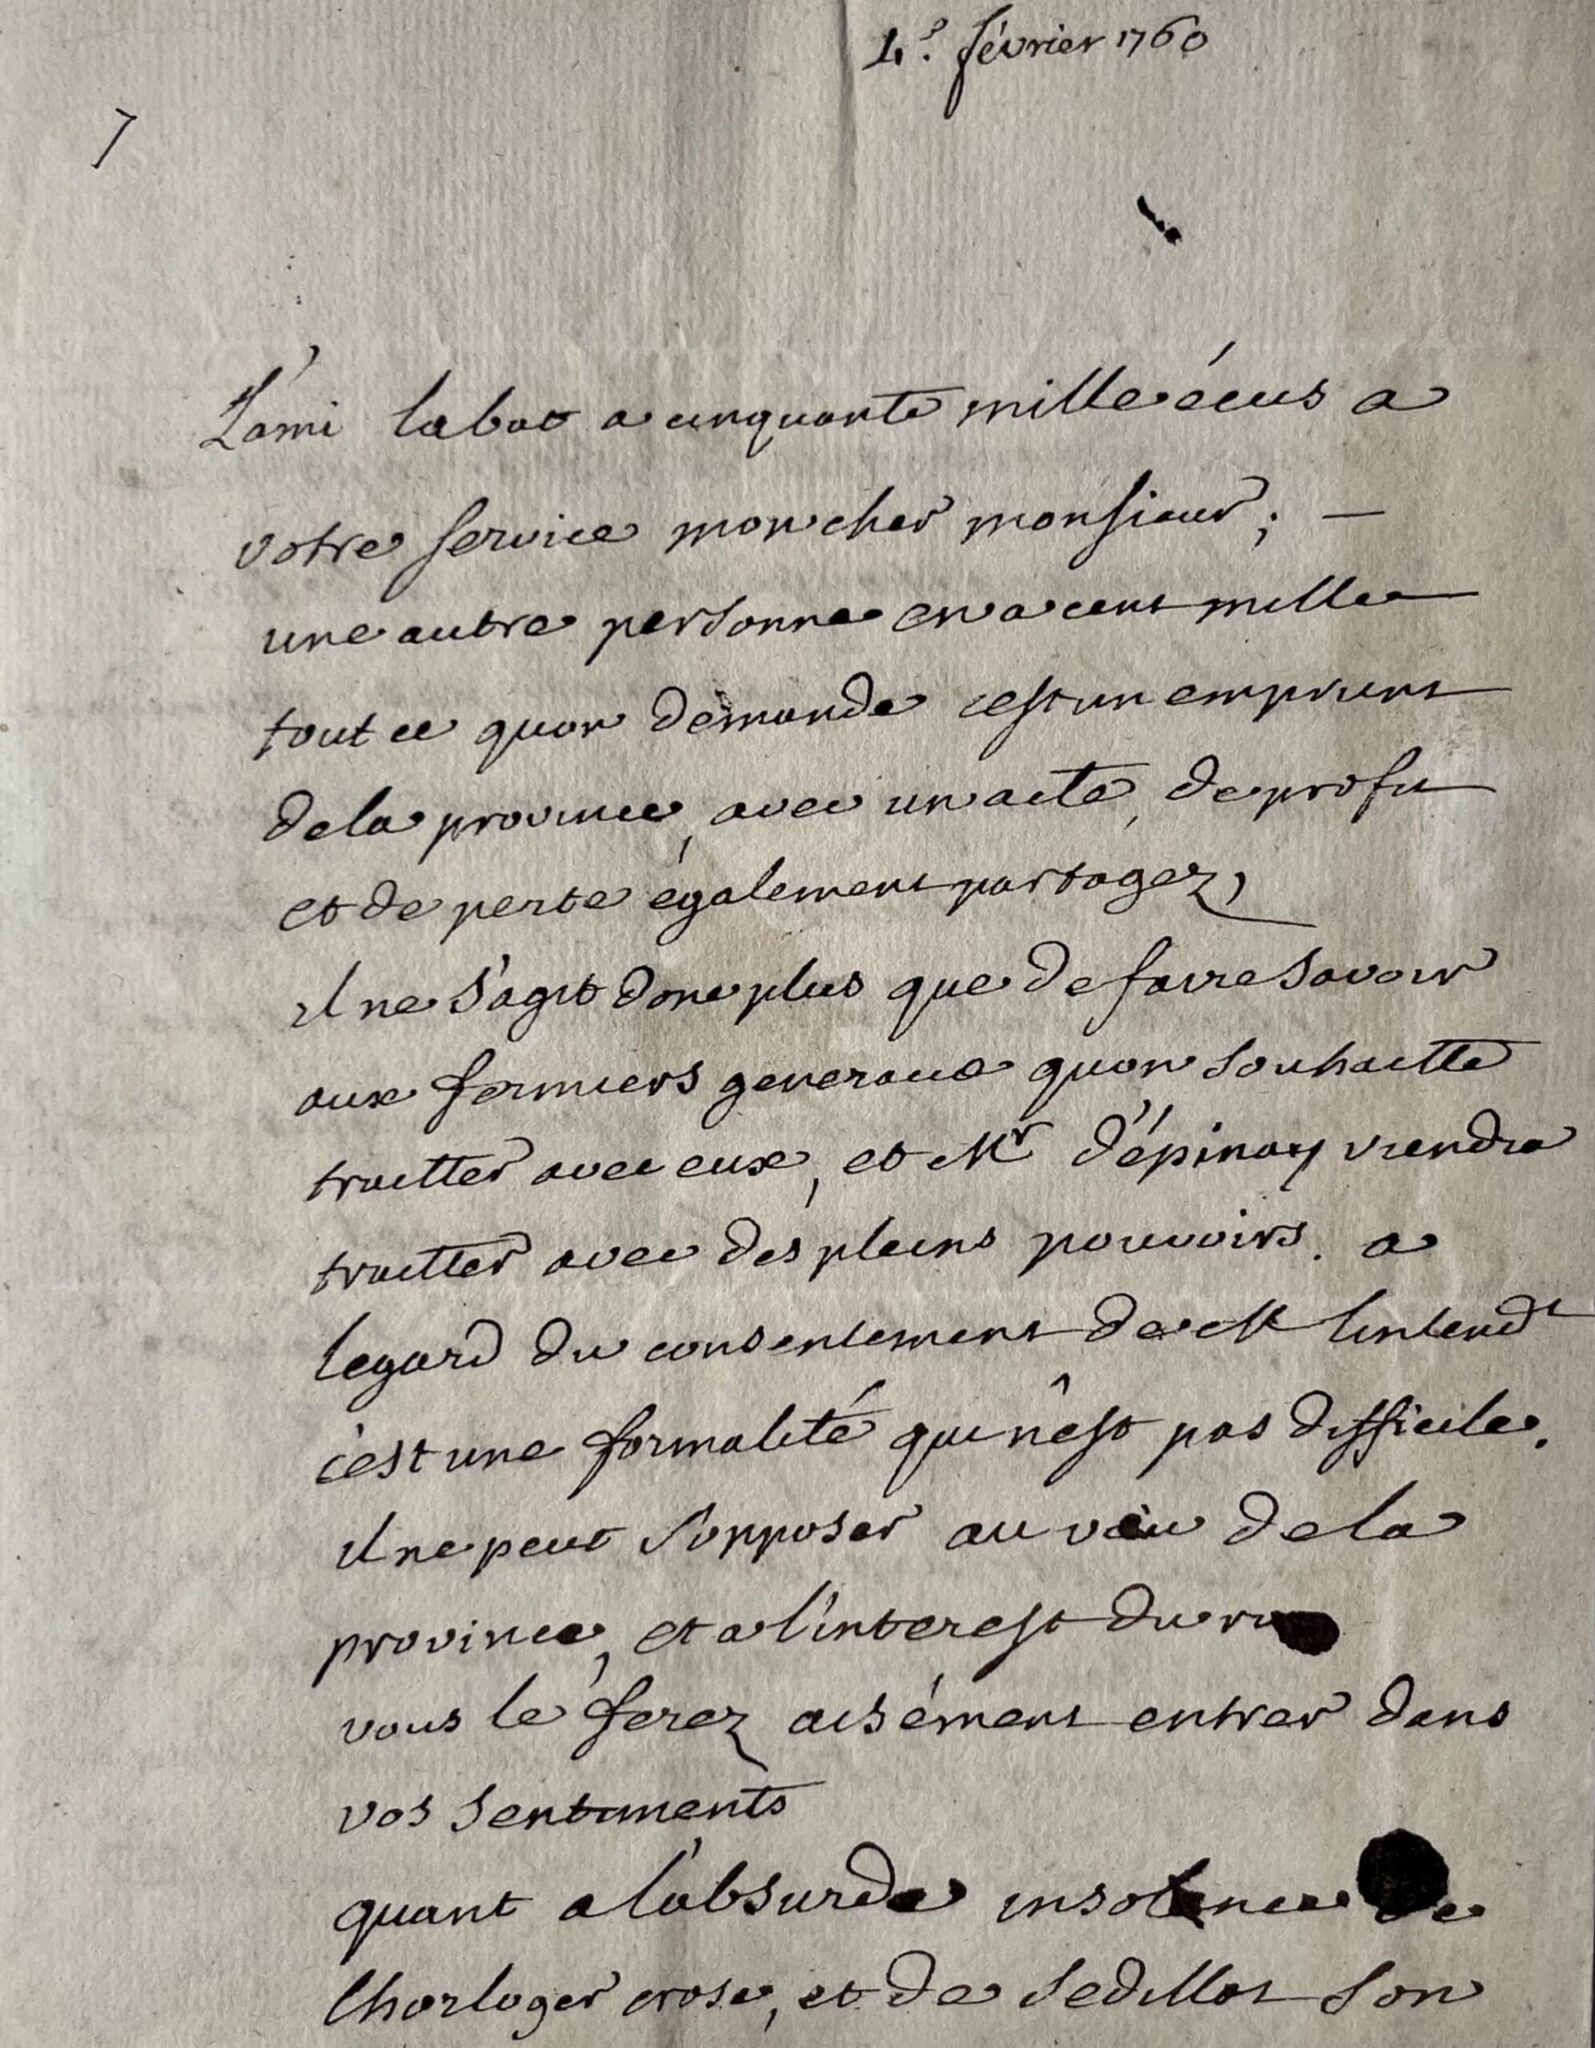 4.e février 1760
7
L'ami labat a cinquante mille écus a
votre service mon cher monsieur; —
une autre personne en a cent mille
tout ce quon demande cest un emprunt
de la province, avec un acte, de profit
et de perte également partagez,
il ne s'agit donc plus que de faire savoir
aux fermiers generaux quon souhaitte
traitter avec eux, et Mr d'épinay viendra
traitter avec des pleins pouvoirs. a
legard du consentement de M lintendt
c'est une formalité qui n'est pas difficile.
il ne peut s'opposer au vœu de la
province, et a l'interest du roi
vous le ferez aisément entrer dans
vos sentiments
quant a l'absurde insolence de
lhorloger crose, et de sedillot son